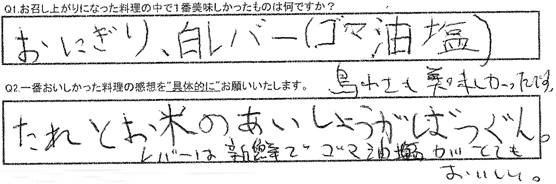 Q1.お召し上がりになった料理の中で1番美味しかったものは何ですか?
おにぎり、白レバー(ゴマ油塩)
鳥わさも美味しかったです。
Q2.一番おいしかった料理の感想を"具体的に"お願いいたします。
たれとお米のあいしょうがばつぐん。
レバーは新鮮でゴマ油塩がとても
おいしい。